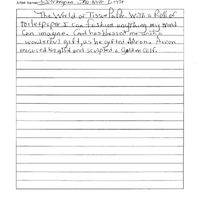 Artist Name:
The World of Tissue Paper. With a Roll of
toilet paper I can fashion anything my mind
can imagine. God has blessed me with a
wonderful gift, as he gifted Aaron. Aaron
misused his gift and sculpted a Golden Calf.